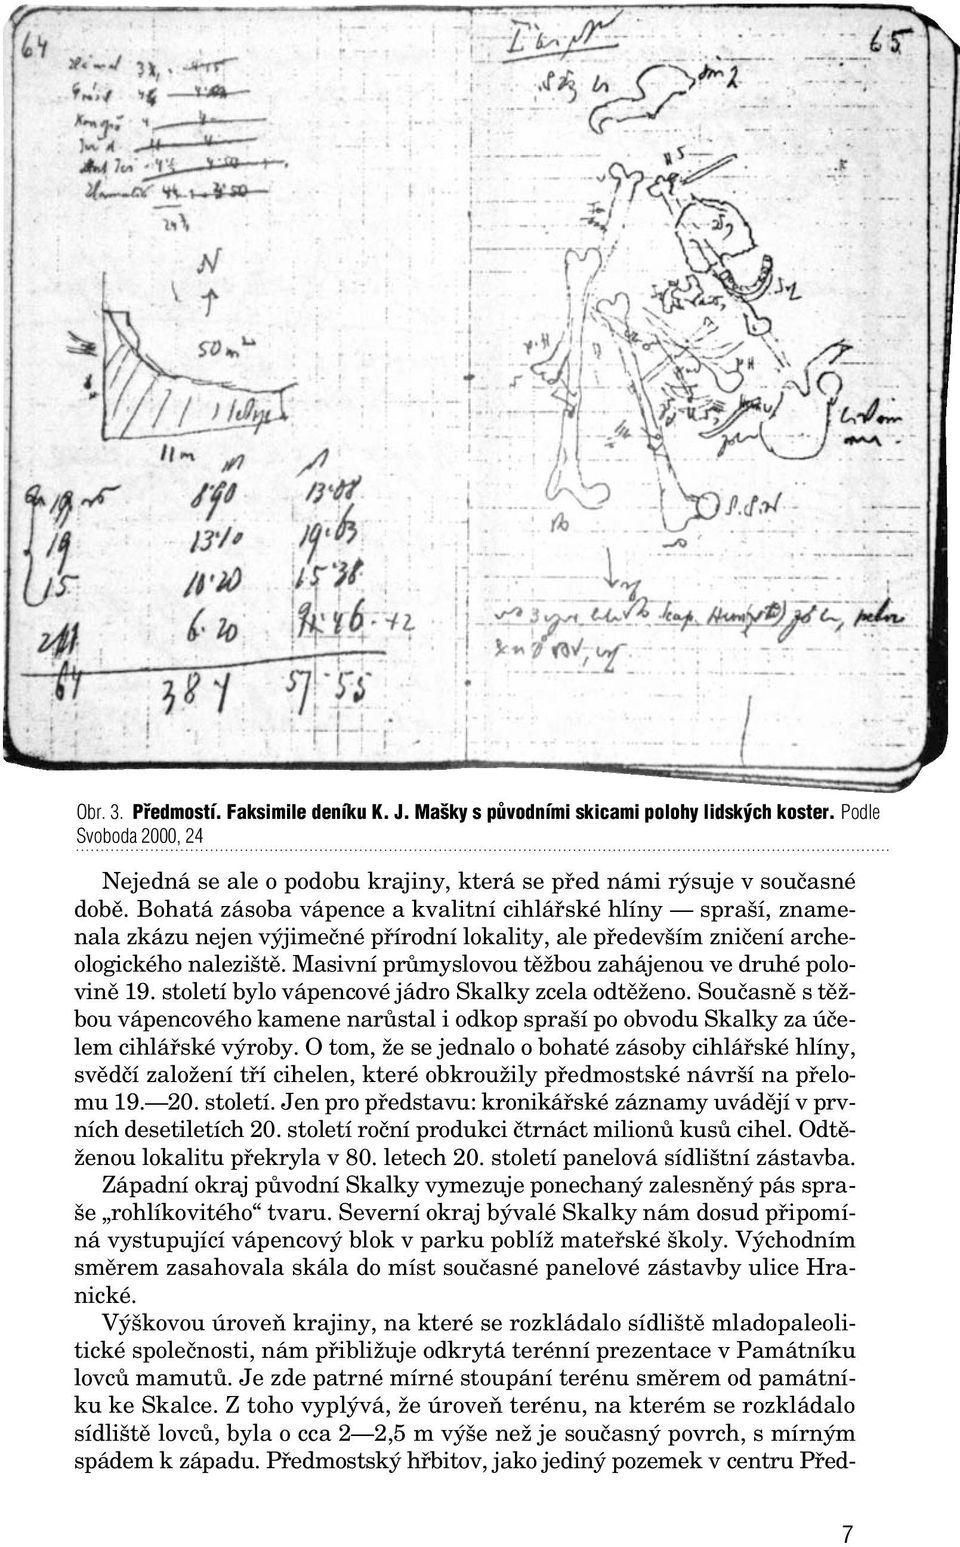 64
65.
N
50 m²
11 m
19
8·90
13·08
19
13·10
19·63
15
10·20
15·38
6·20
64
57·55
Obr. 3. Předmostí. Faksimile deníku K. J. Mašky s původními skicami polohy lidských koster. Podle
Svoboda 2000, 24
Nejedná se ale o podobu krajiny, která se před námi rýsuje v současné
době. Bohatá zásoba vápence a kvalitní cihlářské hlíny — spraší, zname-
nala zkázu nejen výjimečné přírodní lokality, ale především zničení arche-
ologického naleziště. Masivní průmyslovou těžbou zahájenou ve druhé polo-
vině 19. století bylo vápencové jádro Skalky zcela odtěženo. Současně s těž-
bou vápencového kamene narůstal i odkop spraší po obvodu Skalky za úče-
lem cihlářské výroby. O tom, že se jednalo o bohaté zásoby cihlářské hlíny,
svědčí založení tří cihelen, které obkroužily předmostské návrší na přelo-
mu 19.—20. století. Jen pro představu: kronikářské záznamy uvádějí v prv-
ních desetiletích 20. století roční produkci čtrnáct milionů kusů cihel. Odtě-
ženou lokalitu překryla v 80. letech 20. století panelová sídlištní zástavba.
Západní okraj původní Skalky vymezuje ponechaný zalesněný pás spra-
še „rohlíkovitého“ tvaru. Severní okraj bývalé Skalky nám dosud připomí-
ná vystupující vápencový blok v parku poblíž mateřské školy. Východním
směrem zasahovala skála do míst současné panelové zástavby ulice Hra-
nické.
Výškovou úroveň krajiny, na které se rozkládalo sídliště mladopaleoli-
tické společnosti, nám přibližuje odkrytá terénní prezentace v Památníku
lovců mamutů. Je zde patrné mírné stoupání terénu směrem od památní-
ku ke Skalce. Z toho vyplývá, že úroveň terénu, na kterém se rozkládalo
sídliště lovců, byla o cca 2—2,5 m výše než je současný povrch, s mírným
spádem k západu. Předmostský hřbitov, jako jediný pozemek v centru Před-
7